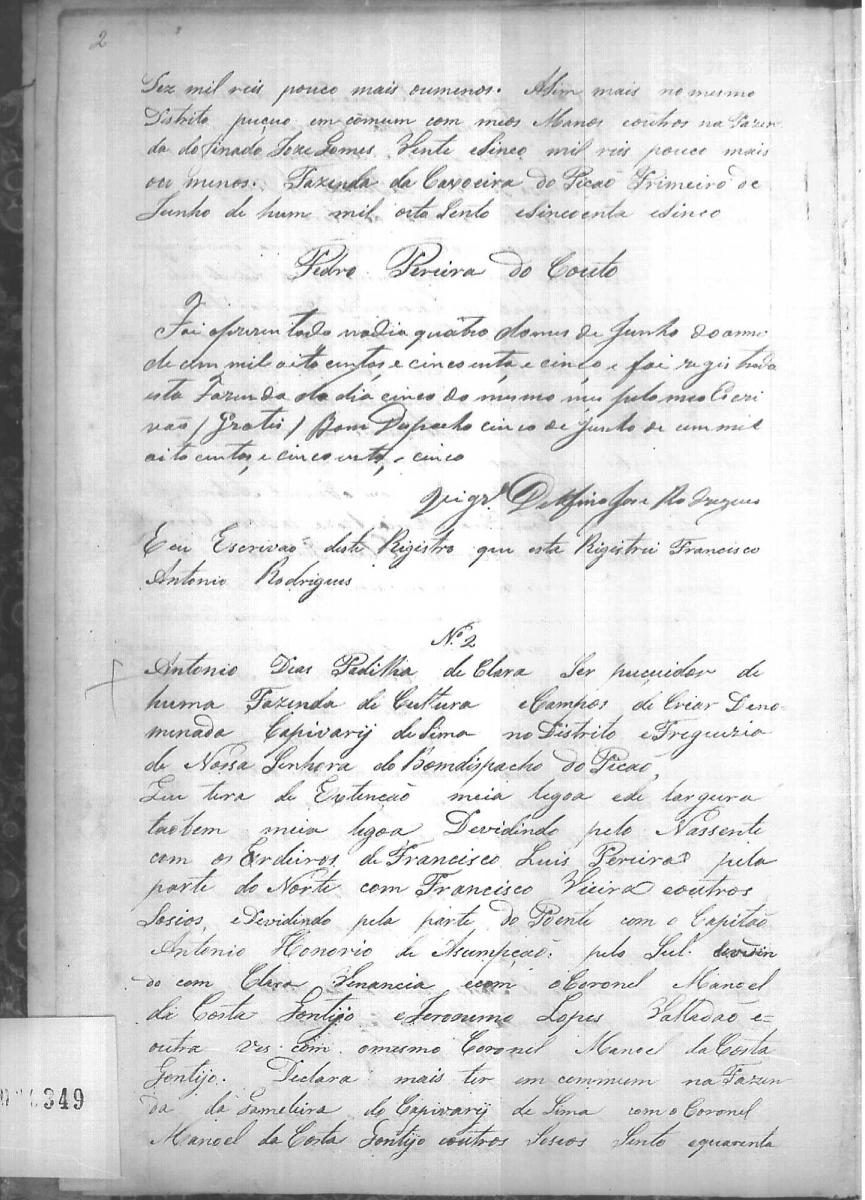 2
Dez mil reis pouco mais oumenos. Asim mais no mesmo
Distrito pucuo em comum com meos Manos eoutros na Fazen
da do finado Joze Gomes Vente esinco mil reis pouco mais
ou menos. Fazenda da Caxoeira do Picaõ Primeiro de
Junho de hum mil oito Sento esincoenta esinco
Pedro Pereira do Couto
Foi aprezentado nodia quatro domes de Junho do anno
de um mil oito centos e cincoenta e cinco e foi registrada
esta Fazenda no dia cinco do mesmo mes pelo meo Escri
vaõ / Gratis / Bom Dispacho cinco de Junho de um mil
oito centos, e cincoenta, e cinco
Vigr.º Delfino Jose Rodrigues
E eu Escrivaõ deste Rigistro que esta Rigistrei Francisco
Antonio Rodrigues
N.º 2
Antonio Dias Padilha de Clara Ser pucuidor de
huma Fazenda de Cultura eCampos de Criar Deno
minada Capivarÿ de Sima no Distrito e Freguizia
de Nossa Senhora do Bomdispacho do Picaõ,
Seu tera de Extençaõ meia legoa ede largura
taobem meia legoa Devidindo pelo Nassente
com os Erdeiros de Francisco Luis Pereira pela
parte do Norte com Francisco Vieira eoutros
Sosios, eDevidindo pela parte do Poente com o Capitaõ
Antonio Honorio de Asumpçaõ. pelo Sul devidin
do com Clara Venancia ecom oCoronel Manoel
da Costa Gontijo eJeronimo Lopes Valladaõ e=
outra ves com omesmo Coronel Manoel da Costa
Gontijo. Declara mais ter em commum na Fazen
da da Gameleira do Capivarÿ de Sima com o Coronel
Manoel da Costa Gontijo eoutros Sosios Sento equarenta
349